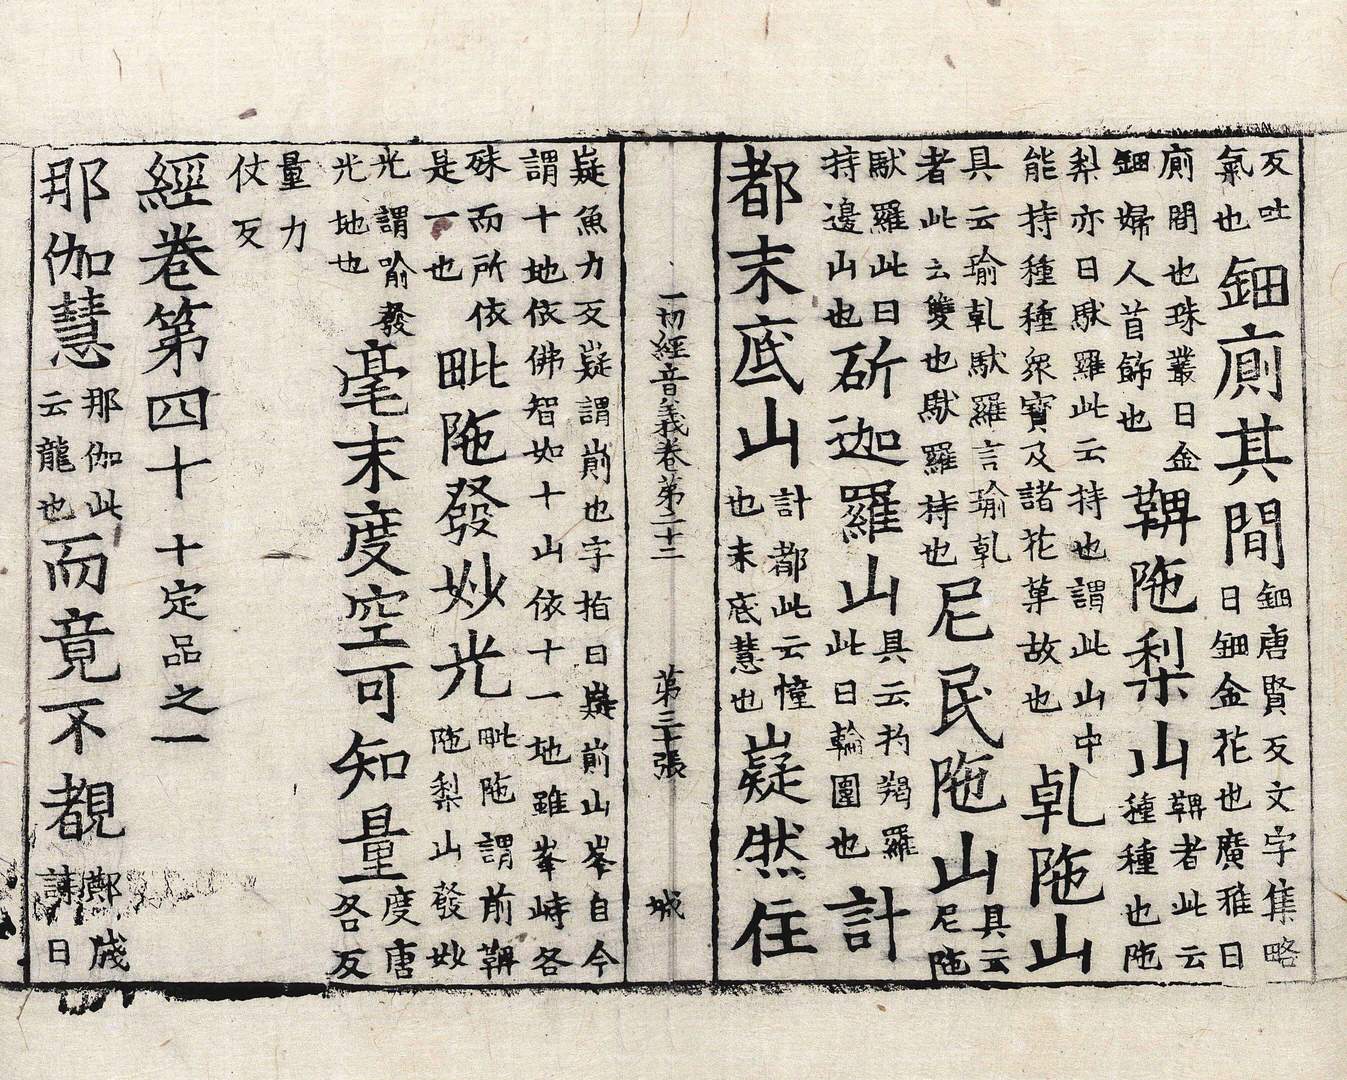 反吐氣也鈿廁其間鈿唐賢反文字集略曰鈿金花也廣雅曰
廁間也珠叢曰金鈿婦人首飾也鞞陁梨山鞞者此云種種也陁
梨亦曰馱羅此云持也謂此山中能持種種衆寶及諸花草故也乹陁山
具云瑜乹馱羅言瑜乹者此云雙也馱羅持也尼民陁山具云尼陁
馱羅此曰持邊山也斫迦羅山具云扚羯羅此曰輪圍也計
都末底山計都此云憧也末底慧也嶷然住
一切經音義卷第二十二 第三十張 城
嶷魚力反嶷謂崱也字指曰嶷崱山峯自今謂十地依佛智如十山依十一地雖峯峙各
殊而所依是一也毗陁發妙光毗陁謂前鞞陁梨山發妙
光謂喻發光地也毫末度空可知量度唐各反
量力仗反
經卷第四十 十定品之一
那伽慧那伽此云龍也而竟不覩鄭箋詩曰